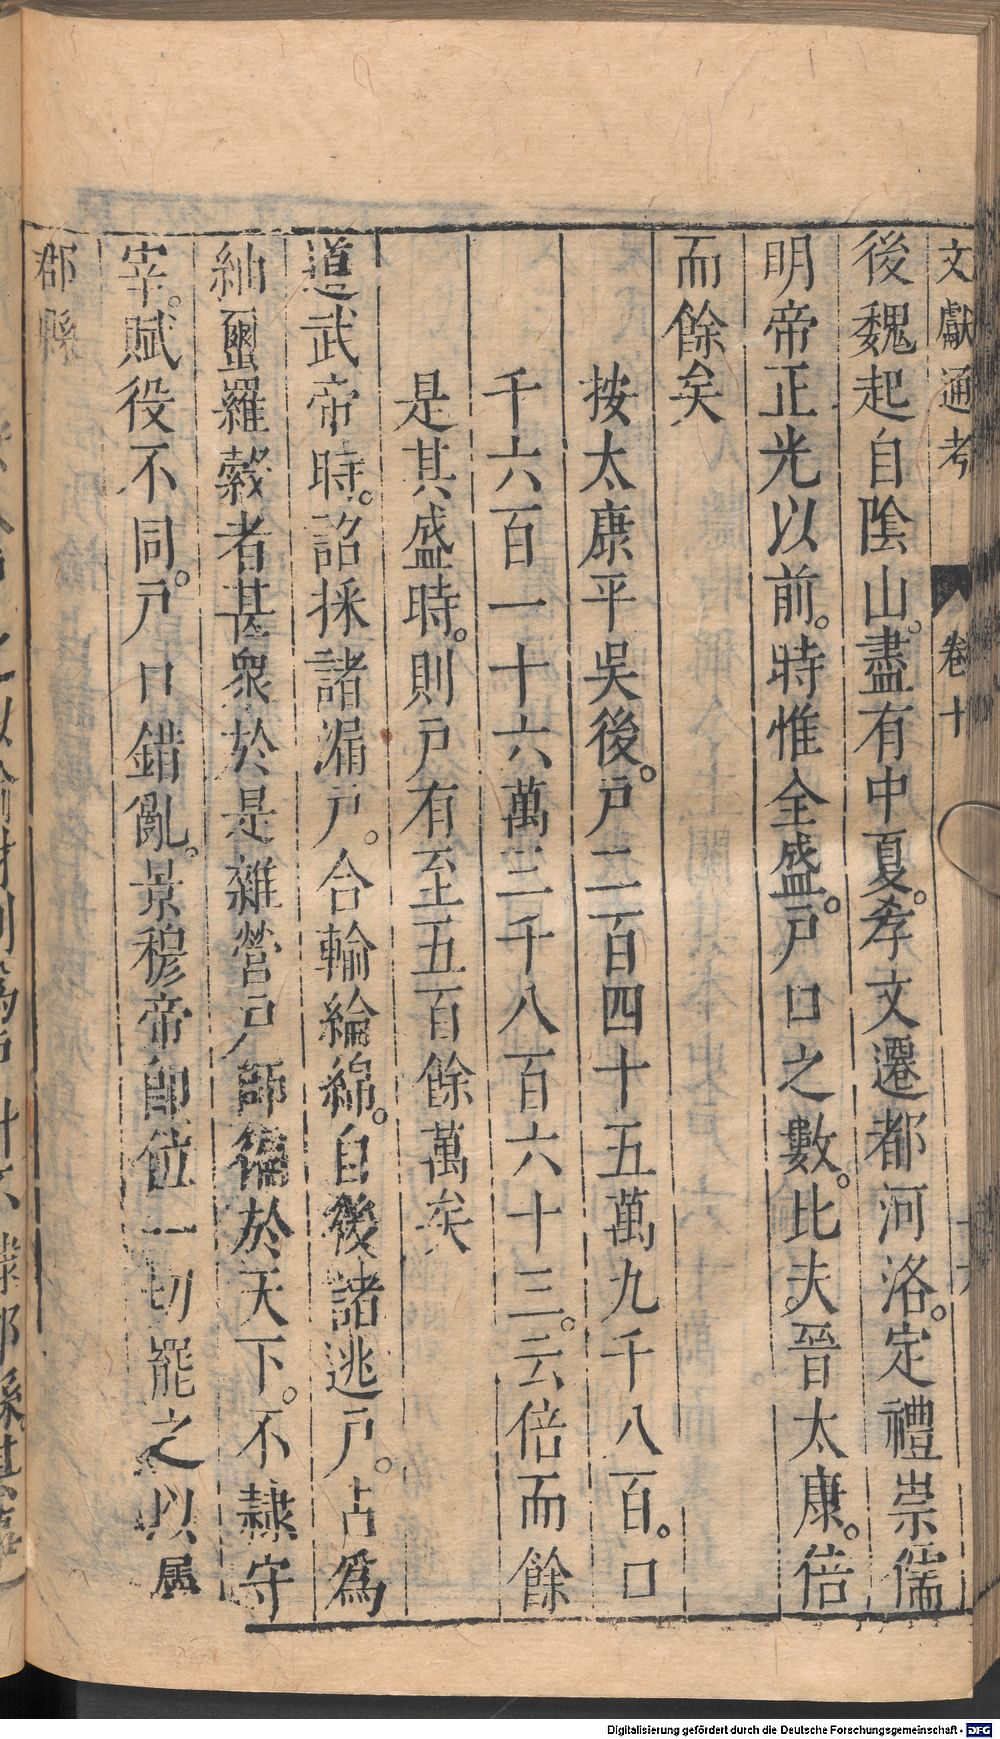 文獻通考 卷十
後魏起自陰山。盡有中夏。孝文遷都河洛。定禮崇儒
明帝正光以前。時惟全盛。戸口之數。比夫晉太康。倍
而餘矣
按太康平吳後。戸二百四十五萬九千八百。口
千六百一十六萬三千八百六十三。云倍而餘
是其盛時。則戸有至五百餘萬矣
道武帝時。詔採諸漏戸。合輸綸綿。自後諸逃戸。占爲
紬璽羅縠者甚衆於是雜營戸師徧於天下。不隷守
宰。賦役不同。戸口錯亂。景穆帝即位一切罷之以属
郡縣
Digitalisierung gefördert durch die Deutsche Forschungsgemeinschaft - DFG